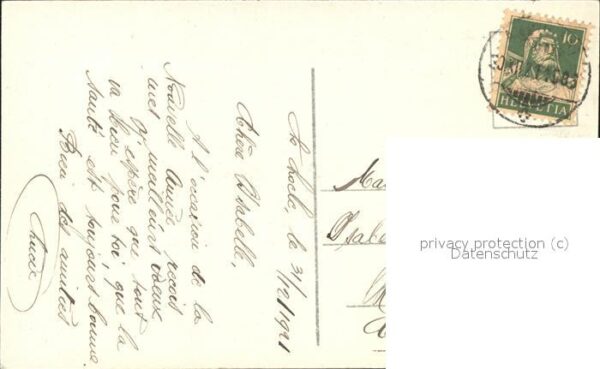 Le Locle, le 31/12/1921
Chère Isabelle,
A l'occasion de la
Nouvelle Année reçois
mes meilleurs vœux
J'espère que tout
va bien pour toi, que la
santé est toujours bonne.
Bien des amitiés
Lucie
10
HELVETIA
Isabe
privacy protection (c)
Datenschutz